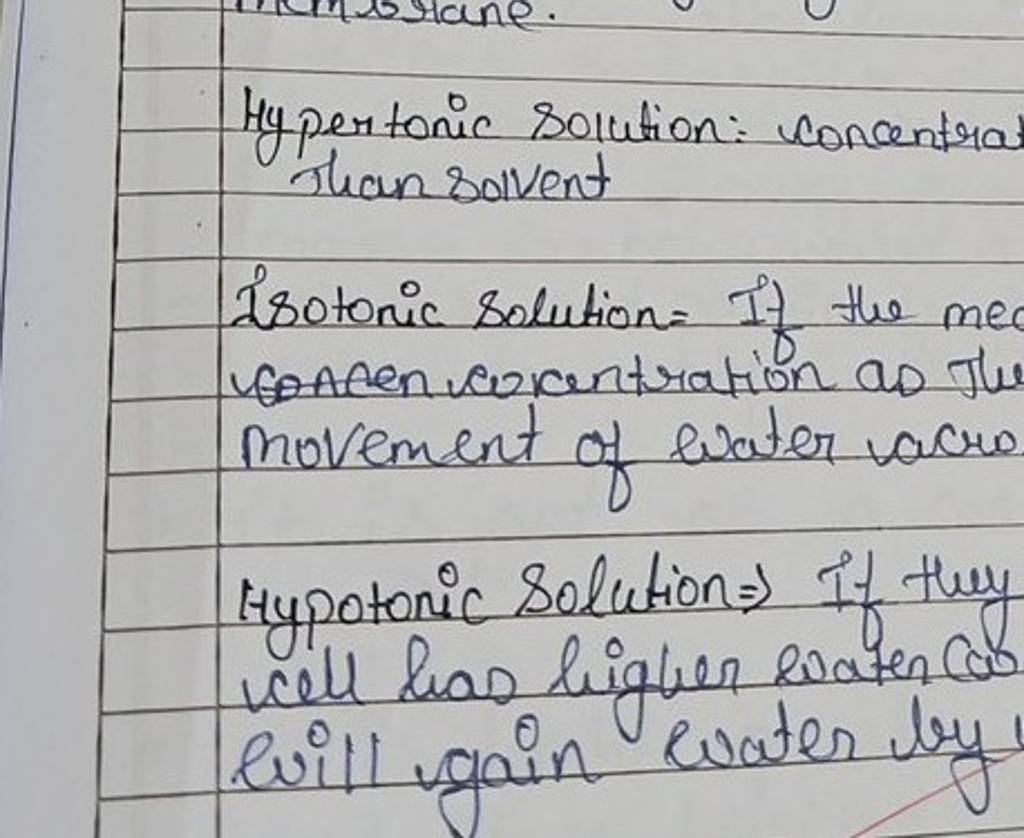 membrane.
Hypertonic Solution:- Concentrat
Than Solvent
Isotonic Solution= If the med
concentration as The
movement of water acro
Hypotonic Solution=) If they
cell has higher water Cas
will gain water by